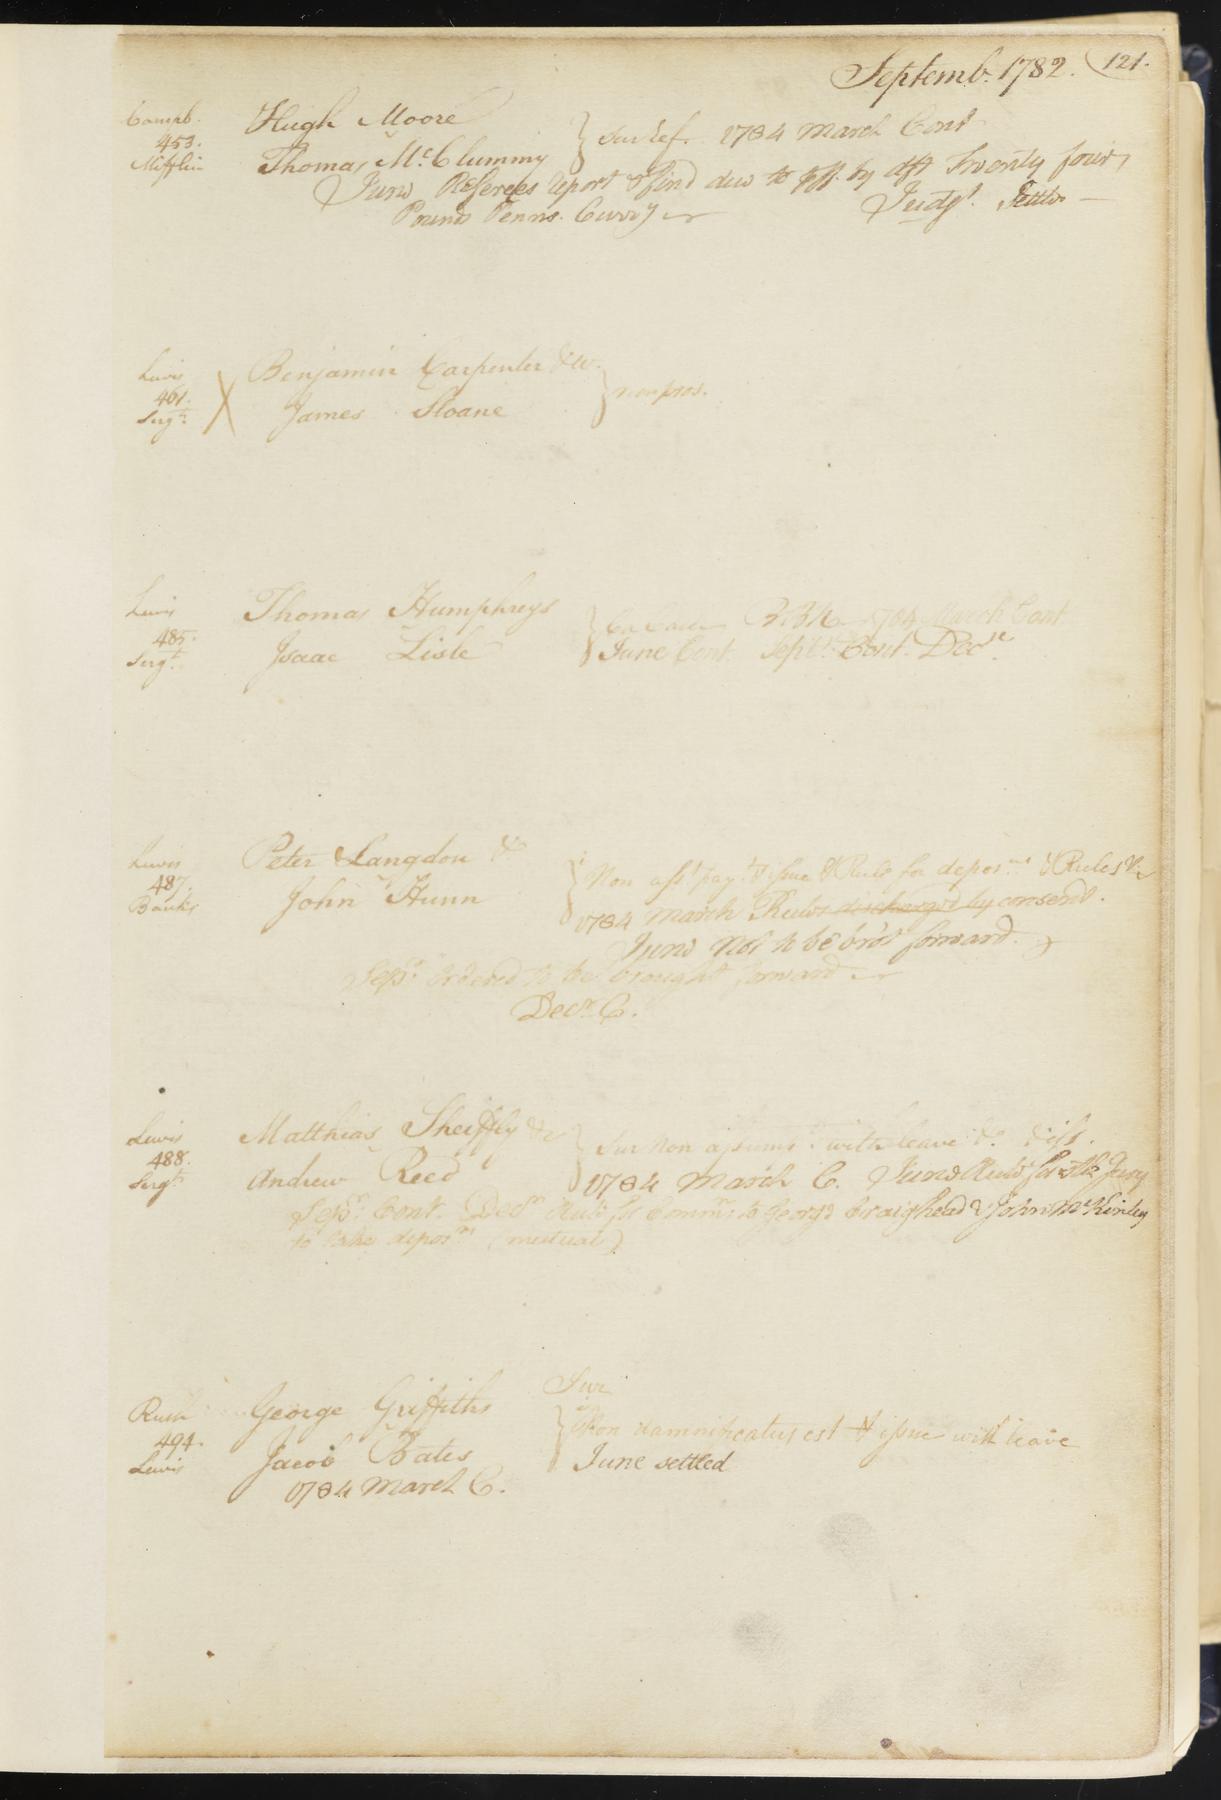 Septemb. 1782. 121.
Campb. Hugh Moore } Sur ref. 1784 March Cont
453.
Mifflin Thomas McClummy
June Referees report & find due to plff. by dft Twenty four
Pounds Penns. Curr'y Judgt. Settled
Lewis Benjamin Carpenter & Ux.
461. } non pros.
Sergt. X James Sloane
Lewis Thomas Humphreys } Ca Case 1784 March Cont
485. June Cont. Sept. Cont. Decr.
Sergt. Isaac Lisle
Lewis Peter Langdon &c } Non asst. pay.t & issue & Rule for depos.ns & Rules &c
487.
Banks John Hunn 1784 March Rules discharged by consent.
June Not to be bro't forward.
Sepr. Ordered to be brought forward
Decr. C.
Lewis Matthias Sheiffly &c } Sur Non assumt. with leave &c. & iss.
488.
Sergt. Andrew Reed 1784 March C. June Rule for Jury
Sepr. Cont. Decr. Rule for Comm.n to George Craighead & John McKinley
to take depos.ns (mutual)
Sur
Rush George Griffiths } Non damnificatus est & issue with leave
494.
Lewis Jacob Bates June settled
1784 March C.